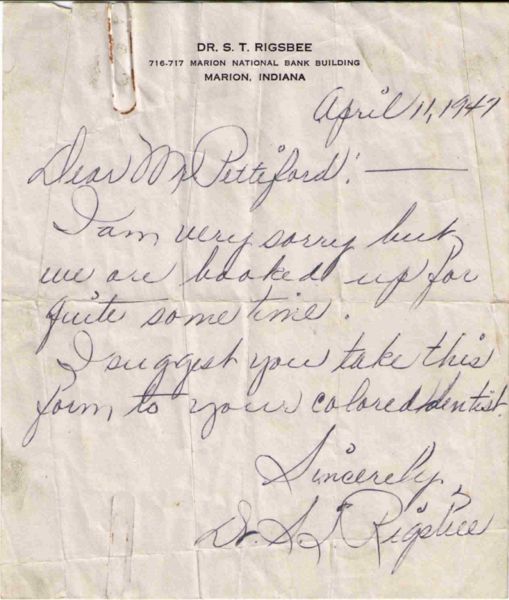 DR. S. T. RIGSBEE
716-717 MARION NATIONAL BANK BUILDING
MARION, INDIANA
April 11, 1947
Dear Mr Pettiford: —
I am very sorry but
we are booked up for
quite some time.
I suggest you take this
form to your colored dentist.
Sincerely,
Dr. S. T. Rigsbee